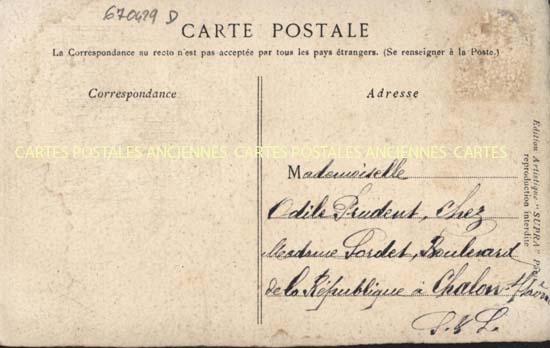 670429 D
CARTE POSTALE
La Correspondance au recto n'est pas acceptée par tous les pays étrangers. (Se renseigner à la Poste.)
Correspondance
Adresse
CARTES POSTALES ANCIENNES CARTES POSTALES ANCIENNES CARTES
Mademoiselle
Odile Prudent, chez
Madame Sordet, Boulevard
de la République à Chalon s/Saône
S. & L.
Edition Artistique "SUPRA"
reproduction interdite